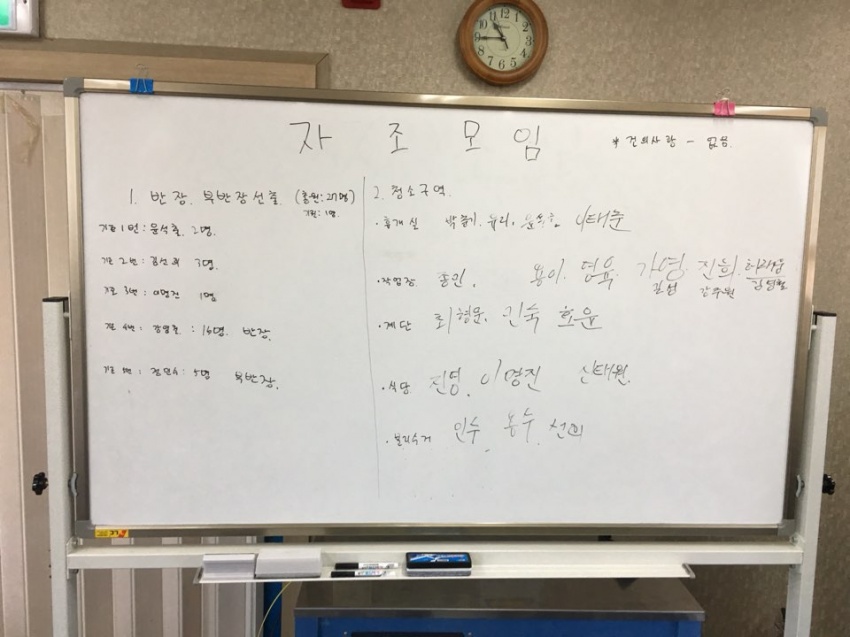 자 조 모 임
* 건의사항 - 없음.
1. 반장, 부반장선출. (총원: 27명)
기권: 1명.
기호 1번: 윤석출, 2명.
기호 2번: 김선희 3명.
기호 3번: 이명진 1명
기호 4번: 강영호 : 16명. 반장.
기호 5번: 전인수: 5명 부반장.
2. 청소구역.
· 휴게실 박춘기, 유리, 이태준
· 작업장. 용이, 영욱, 가영, 진희,
· 계단 최형운, 진숙 효윤
· 식당 진영, 이명진 신태원.
· 분리수거 인수, 용수, 선희